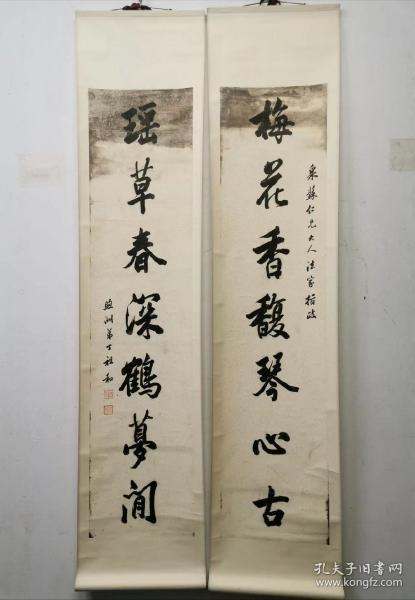 梅花香馥琴心古
蘇仁兄大人法家指政
瑶草春深鶴夢閒
洲弟丁祖和
孔夫子旧书网
www.kongfz.com